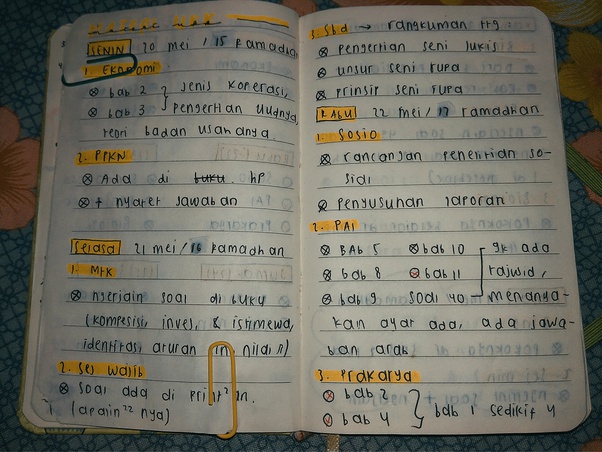 MATERI UKK
SENIN 20 mei / 15 Ramadhan
1. EKOnomi
bab 2 } Jenis Koperasi,
bab 3 } pengertian uudnya,
teori badan usahanya.
2. PPKN
Ada di buku. hp
+ nyatet Jawaban
Selasa 21 mei / 16 Ramadhan
1. MTK
ngerjain soal di buku
(komposisi, inves, & istimewa,
identitas, aturan lim nilai n)
2. Sej wajib
Soal ada di print²an.
(apain²² nya)
3. Sbd → rangkuman ttg :
pengertian seni lukis
unsur seni rupa
prinsip seni rupa
RABU 22 mei / 17 ramadhan
1. Sosio
rancangan penelitian so-
sial
penyusunan laporan
2. PAI
BAb 5 bab 10 gk ada
bab 8 bab 11 tajwid,
bab 9 soal 40 menanya-
kan ayat ada, ada jawa-
ban arab
3. Prakarya
bab 2
bab 4 } bab 1 sedikit 4